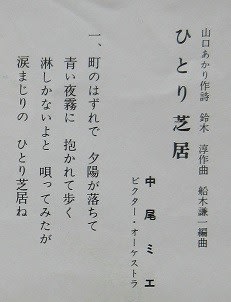 山口あかり作詩 鈴木 淳作曲 船木謙一編曲
ひとり芝居
中尾ミエ
ビクター・オーケストラ
一、町のはずれで 夕陽が落ちて
青い夜霧に 抱かれて歩く
淋しかないよと 唄ってみたが
涙まじりの ひとり芝居ね